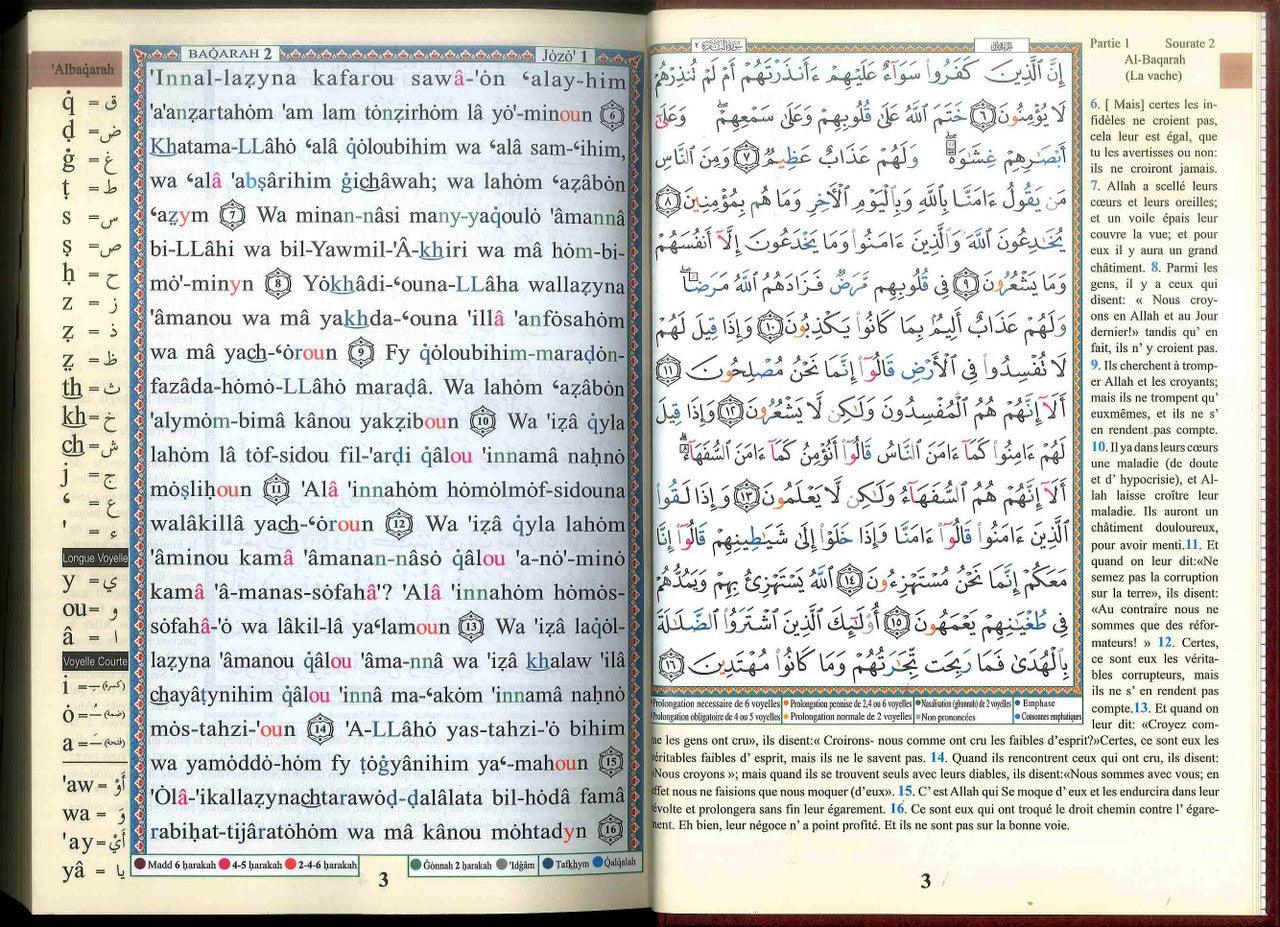 'Albaqarah
q̇ = ق
ḍ = ض
ġ = غ
ṭ = ط
s = س
ṣ = ص
ḥ = ح
z = ز
ẓ = ذ
ẓ̣ = ظ
th = ث
kh = خ
ch = ش
j = ج
ʿ = ع
' = ء
Longue Voyelle
y = ي
ou = و
â = ا
Voyelle Courte
i = ـِ (كسرة)
ȯ = ـُ (ضمة)
a = ـَ (فتحة)
'aw = أَوْ
wa = وَ
'ay = أَيْ
yâ = يا
BAQ̇ARAH 2 Jȯzȯ' 1
'Innal-laẓyna kafarou sawâ-'ȯn ʿalay-him
'a'anẓartahȯm 'am lam tȯnẓirhȯm lâ yȯ'-minoun 6
Khatama-LLâhȯ ʿalâ q̇ȯloubihim wa ʿalâ sam-ʿihim,
wa ʿalâ 'abṣârihim ġichâwah; wa lahȯm ʿaẓâbȯn
ʿaẓym 7 Wa minan-nâsi many-yaq̇oulȯ 'âmannâ
bi-LLâhi wa bil-Yawmil-'Â-khiri wa mâ hȯm-bi-
mȯ'-minyn 8 Yȯkhâdi-ʿouna-LLâha wallaẓyna
'âmanou wa mâ yakhda-ʿouna 'illâ 'anfȯsahȯm
wa mâ yach-ʿȯroun 9 Fy q̇ȯloubihim-maraḍȯn-
fazâda-hȯmȯ-LLâhȯ maraḍâ. Wa lahȯm ʿaẓâbȯn
'alymȯm-bimâ kânou yakẓiboun 10 Wa 'iẓâ q̇yla
lahȯm lâ tȯf-sidou fil-'arḍi q̇âlou 'innamâ naḥnȯ
mȯṣliḥoun 11 'Alâ 'innahȯm hȯmȯlmȯf-sidouna
walâkillâ yach-ʿȯroun 12 Wa 'iẓâ q̇yla lahȯm
'âminou kamâ 'âmanan-nâsȯ q̇âlou 'a-nȯ'-minȯ
kamâ 'â-manas-sȯfahâ'? 'Alâ 'innahȯm hȯmȯs-
sȯfahâ-'ȯ wa lâkil-lâ yaʿlamoun 13 Wa 'iẓâ laq̇ȯl-
laẓyna 'âmanou q̇âlou 'âma-nnâ wa 'iẓâ khalaw 'ilâ
chayâṭynihim q̇âlou 'innâ ma-ʿakȯm 'innamâ naḥnȯ
mȯs-tahzi-'oun 14 'A-LLâhȯ yas-tahzi-'ȯ bihim
wa yamȯddȯ-hȯm fy ṭȯġyânihim yaʿ-mahoun 15
'Ȯlâ-'ikallaẓynachtarawȯḍ-ḍalâlata bil-hȯdâ famâ
rabiḥat-tijâratȯhȯm wa mâ kânou mȯhtadyn 16
Madd 6 ḥarakah 4-5 ḥarakah 2-4-6 ḥarakah Ġȯnnah 2 ḥarakah 'Idġâm Tafkhym Q̇alq̇alah
3
سورة البقرة ٢
إِنَّ ٱلَّذِينَ كَفَرُوا۟ سَوَآءٌ عَلَيْهِمْ ءَأَنذَرْتَهُمْ أَمْ لَمْ تُنذِرْهُمْ
لَا يُؤْمِنُونَ ٦ خَتَمَ ٱللَّهُ عَلَىٰ قُلُوبِهِمْ وَعَلَىٰ سَمْعِهِمْ ۖ وَعَلَىٰٓ
أَبْصَٰرِهِمْ غِشَٰوَةٌ ۖ وَلَهُمْ عَذَابٌ عَظِيمٌ ٧ وَمِنَ ٱلنَّاسِ
مَن يَقُولُ ءَامَنَّا بِٱللَّهِ وَبِٱلْيَوْمِ ٱلْءَاخِرِ وَمَا هُم بِمُؤْمِنِينَ ٨
يُخَٰدِعُونَ ٱللَّهَ وَٱلَّذِينَ ءَامَنُوا۟ وَمَا يَخْدَعُونَ إِلَّآ أَنفُسَهُمْ
وَمَا يَشْعُرُونَ ٩ فِى قُلُوبِهِم مَّرَضٌ فَزَادَهُمُ ٱللَّهُ مَرَضًا ۖ
وَلَهُمْ عَذَابٌ أَلِيمٌۢ بِمَا كَانُوا۟ يَكْذِبُونَ ١٠ وَإِذَا قِيلَ لَهُمْ
لَا تُفْسِدُوا۟ فِى ٱلْأَرْضِ قَالُوٓا۟ إِنَّمَا نَحْنُ مُصْلِحُونَ ١١
أَلَآ إِنَّهُمْ هُمُ ٱلْمُفْسِدُونَ وَلَٰكِن لَّا يَشْعُرُونَ ١٢ وَإِذَا قِيلَ
لَهُمْ ءَامِنُوا۟ كَمَآ ءَامَنَ ٱلنَّاسُ قَالُوٓا۟ أَنُؤْمِنُ كَمَآ ءَامَنَ ٱلسُّفَهَآءُ ۗ
أَلَآ إِنَّهُمْ هُمُ ٱلسُّفَهَآءُ وَلَٰكِن لَّا يَعْلَمُونَ ١٣ وَإِذَا لَقُوا۟
ٱلَّذِينَ ءَامَنُوا۟ قَالُوٓا۟ ءَامَنَّا وَإِذَا خَلَوْا۟ إِلَىٰ شَيَٰطِينِهِمْ قَالُوٓا۟ إِنَّا
مَعَكُمْ إِنَّمَا نَحْنُ مُسْتَهْزِءُونَ ١٤ ٱللَّهُ يَسْتَهْزِئُ بِهِمْ وَيَمُدُّهُمْ
فِى طُغْيَٰنِهِمْ يَعْمَهُونَ ١٥ أُو۟لَٰٓئِكَ ٱلَّذِينَ ٱشْتَرَوُا۟ ٱلضَّلَٰلَةَ
بِٱلْهُدَىٰ فَمَا رَبِحَت تِّجَٰرَتُهُمْ وَمَا كَانُوا۟ مُهْتَدِينَ ١٦
Prolongation necessaire de 6 voyelles Prolongation permise de 2,4 ou 6 voyelles Nasalisation (ghunnah) de 2 voyelles Emphase
Prolongation obligatoire de 4 ou 5 voyelles Prolongation normale de 2 voyelles Non prononcées Consonnes emphatiques
Partie 1 Sourate 2
Al-Baqarah
(La vache)
6. [ Mais] certes les in-
fidèles ne croient pas,
cela leur est égal, que
tu les avertisses ou non:
ils ne croiront jamais.
7. Allah a scellé leurs
cœurs et leurs oreilles;
et un voile épais leur
couvre la vue; et pour
eux il y aura un grand
châtiment. 8. Parmi les
gens, il y a ceux qui
disent: « Nous croy-
ons en Allah et au Jour
dernier!» tandis qu' en
fait, ils n' y croient pas.
9. Ils cherchent à tromp-
er Allah et les croyants;
mais ils ne trompent qu'
euxmêmes, et ils ne s'
en rendent pas compte.
10. Il y a dans leurs cœurs
une maladie (de doute
et d' hypocrisie), et Al-
lah laisse croître leur
maladie. Ils auront un
châtiment douloureux,
pour avoir menti.11. Et
quand on leur dit:«Ne
semez pas la corruption
sur la terre», ils disent:
«Au contraire nous ne
sommes que des réfor-
mateurs! » 12. Certes,
ce sont eux les vérita-
bles corrupteurs, mais
ils ne s' en rendent pas
compte.13. Et quand on
leur dit: «Croyez com-
me les gens ont cru», ils disent:« Croirons- nous comme ont cru les faibles d'esprit?»Certes, ce sont eux les
véritables faibles d' esprit, mais ils ne le savent pas. 14. Quand ils rencontrent ceux qui ont cru, ils disent:
«Nous croyons »; mais quand ils se trouvent seuls avec leurs diables, ils disent:«Nous sommes avec vous; en
effet nous ne faisions que nous moquer (d'eux». 15. C' est Allah qui Se moque d' eux et les endurcira dans leur
révolte et prolongera sans fin leur égarement. 16. Ce sont eux qui ont troqué le droit chemin contre l' égare-
ment. Eh bien, leur négoce n' a point profité. Et ils ne sont pas sur la bonne voie.
3